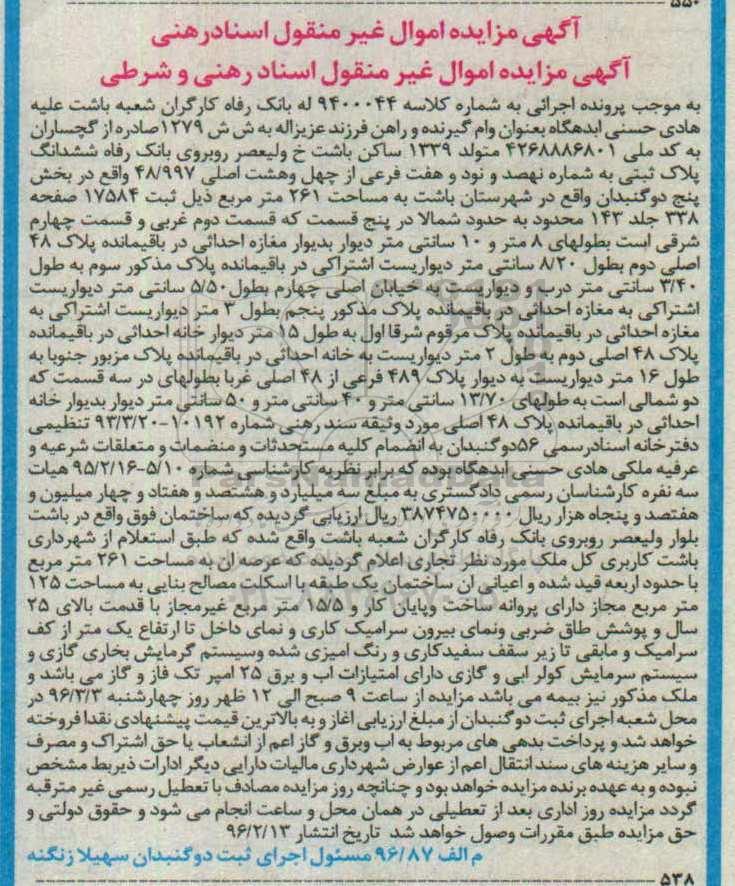 ۵۵۰
آگهی مزایده اموال غیر منقول اسنادرهنی
آگهی مزایده اموال غیر منقول اسناد رهنی و شرطی
به موجب پرونده اجرائی به شماره کلاسه ۹۴۰۰۰۴۴ له بانک رفاه کارگران شعبه باشت علیه
هادی حسنی ابدهگاه بعنوان وام گیرنده و راهن فرزند عزیزاله به ش ش ۱۲۷۹صادره از گچساران
به کد ملی ۴۲۶۸۸۸۶۸۰۱ متولد ۱۳۳۹ ساکن باشت خ ولیعصر روبروی بانک رفاه ششدانگ
پلاک ثبتی به شماره نهصد و نود و هفت فرعی از چهل وهشت اصلی ۴۸/۹۹۷ واقع در بخش
پنج دوگنبدان واقع در شهرستان باشت به مساحت ۲۶۱ متر مربع ذیل ثبت ۱۷۵۸۴ صفحه
۳۳۸ جلد ۱۴۳ محدود به حدود شمالا در پنج قسمت که قسمت دوم غربی و قسمت چهارم
شرقی است بطولهای ۸ متر و ۱۰ سانتی متر دیوار بدیوار مغازه احداثی در باقیمانده پلاک ۴۸
اصلی دوم بطول ۸/۲۰ سانتی متر دیواریست اشتراکی در باقیمانده پلاک مذکور سوم به طول
۳/۴۰ سانتی متر درب و دیواریست به خیابان اصلی چهارم بطول۵/۵۰ سانتی متر دیواریست
اشتراکی به مغازه احداثی در باقیمانده پلاک مذکور پنجم بطول ۳ متر دیواریست اشتراکی به
مغازه احداثی در باقیمانده پلاک مرقوم شرقا اول به طول ۱۵ متر دیوار خانه احداثی در باقیمانده
پلاک ۴۸ اصلی دوم به طول ۲ متر دیواریست به خانه احداثی در باقیمانده پلاک مزبور جنوبا به
طول ۱۶ متر دیواریست به دیوار پلاک ۴۸۹ فرعی از ۴۸ اصلی غربا بطولهای در سه قسمت که
دو شمالی است به طولهای ۱۳/۷۰ سانتی متر و ۴۰ سانتی متر و ۵۰ سانتی متر دیوار بدیوار خانه
احداثی در باقیمانده پلاک ۴۸ اصلی مورد وثیقه سند رهنی شماره ۱۰۱۹۲-۹۳/۳/۲۰ تنظیمی
دفترخانه اسنادرسمی ۵۶دوگنبدان به انضمام کلیه مستحدثات و منضمات و متعلقات شرعیه و
عرفیه ملکی هادی حسنی ابدهگاه بوده که برابر نظریه کارشناسی شماره ۵/۱۰-۹۵/۲/۱۶ هیات
سه نفره کارشناسان رسمی دادگستری به مبلغ سه میلیارد و هشتصد و هفتاد و چهار میلیون و
هفتصد و پنجاه هزار ریال ۳۸۷۴۷۵۰۰۰۰ ریال ارزیابی گردیده که ساختمان فوق واقع در باشت
بلوار ولیعصر روبروی بانک رفاه کارگران شعبه باشت واقع شده که طبق استعلام از شهرداری
باشت کاربری کل ملک مورد نظر تجاری اعلام گردیده که عرصه ان به مساحت ۲۶۱ متر مربع
با حدود اربعه قید شده و اعیانی ان ساختمان یک طبقه با اسکلت مصالح بنایی به مساحت ۱۲۵
متر مربع مجاز دارای پروانه ساخت وپایان کار و ۱۵/۵ متر مربع غیرمجاز با قدمت بالای ۲۵
سال و پوشش طاق ضربی ونمای بیرون سرامیک کاری و نمای داخل تا ارتفاع یک متر از کف
سرامیک و مابقی تا زیر سقف سفیدکاری و رنگ امیزی شده وسیستم گرمایش بخاری گازی و
سیستم سرمایش کولر ابی و گازی دارای امتیازات اب و برق ۲۵ امپر تک فاز و گاز می باشد و
ملک مذکور نیز بیمه می باشد مزایده از ساعت ۹ صبح الی ۱۲ ظهر روز چهارشنبه ۹۶/۳/۳ در
محل شعبه اجرای ثبت دوگنبدان از مبلغ ارزیابی اغاز و به بالاترین قیمت پیشنهادی نقدا فروخته
خواهد شد و پرداخت بدهی های مربوط به اب وبرق و گاز اعم از انشعاب یا حق اشتراک و مصرف
و سایر هزینه های سند انتقال اعم از عوارض شهرداری مالیات دارایی دیگر ادارات ذیربط مشخص
نبوده و به عهده برنده مزایده خواهد بود و چنانچه روز مزایده مصادف با تعطیل رسمی غیر مترقبه
گردد مزایده روز اداری بعد از تعطیلی در همان محل و ساعت انجام می شود و حقوق دولتی و
حق مزایده طبق مقررات وصول خواهد شد تاریخ انتشار ۹۶/۲/۱۳
م الف ۹۶/۸۷ مسئول اجرای ثبت دوگنبدان سهیلا زنگنه
۵۳۸